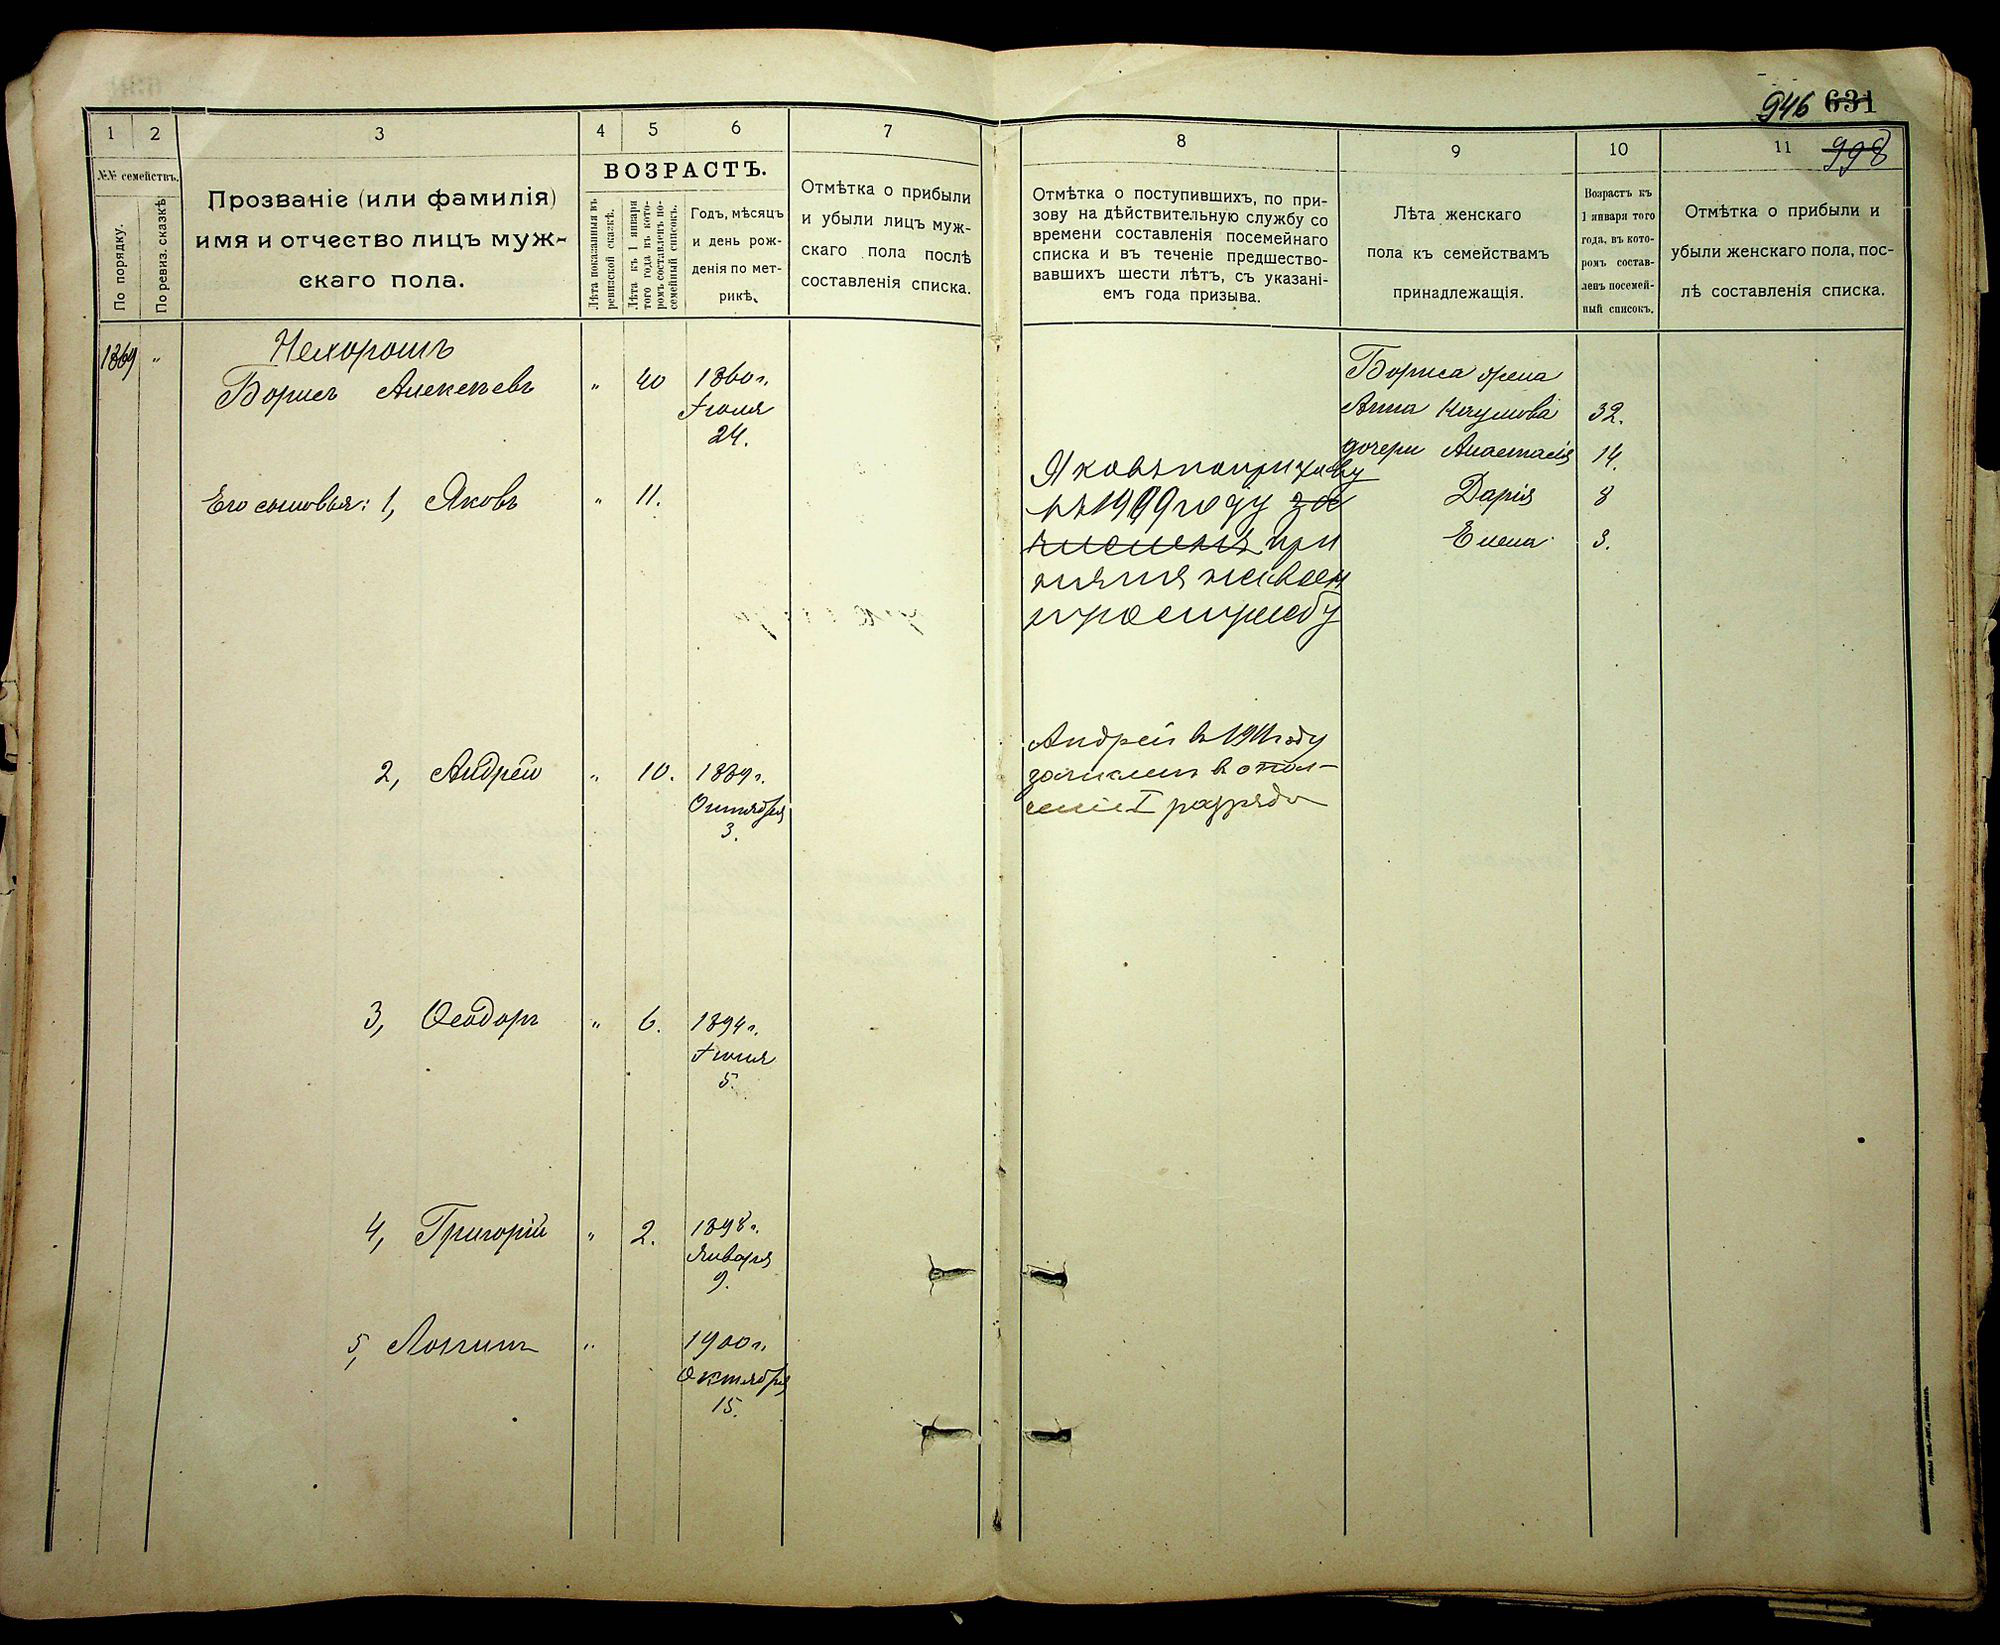 946 631
998
1 2 3 4 5 6 7 8 9 10 11
№№ семействъ.
По порядку.
По ревиз. сказкѣ
Прозваніе (или фамилія)
имя и отчество лицъ муж-
скаго пола.
ВОЗРАСТЪ.
Лѣта показанныя въ
ревизской сказкѣ.
Лѣта къ 1 января
того года въ кото-
ромъ составленъ по-
семейный списокъ.
Годъ, мѣсяцъ
и день рож-
денія по мет-
рикѣ.
Отмѣтка о прибыли
и убыли лицъ муж-
скаго пола послѣ
составленія списка.
Отмѣтка о поступившихъ, по при-
зову на дѣйствительную службу со
времени составленія посемейнаго
списка и въ теченіе предшество-
вавшихъ шести лѣтъ, съ указані-
емъ года призыва.
Лѣта женскаго
пола къ семействамъ
принадлежащія.
Возрастъ къ
1 января того
года, въ кото-
ромъ состав-
ленъ посемей-
ный списокъ.
Отмѣтка о прибыли и
убыли женскаго пола, пос-
лѣ составленія списка.
1369 „ Нехорошъ
Борисъ Алексѣевъ „ 40 1860 г.
Іюля
24.
Бориса жена
Анна Наумова 32.
дочери Анастасія 14.
Дарія 8
Елена 3.
Его сыновья: 1, Яковъ „ 11.
Яковъ по призыву
въ 1909 году за
численъ при
нятъ на воен
ную службу
2, Андрей „ 10. 1889 г.
Октября
3.
Андрей в 1911 году
зачислен в опол-
чение I разряда
3, Ѳеодоръ „ 6. 1894 г.
Іюня
5.
4, Григорій „ 2. 1898 г.
Января
9.
5, Логгинъ „ 1900 г.
Октября
15.